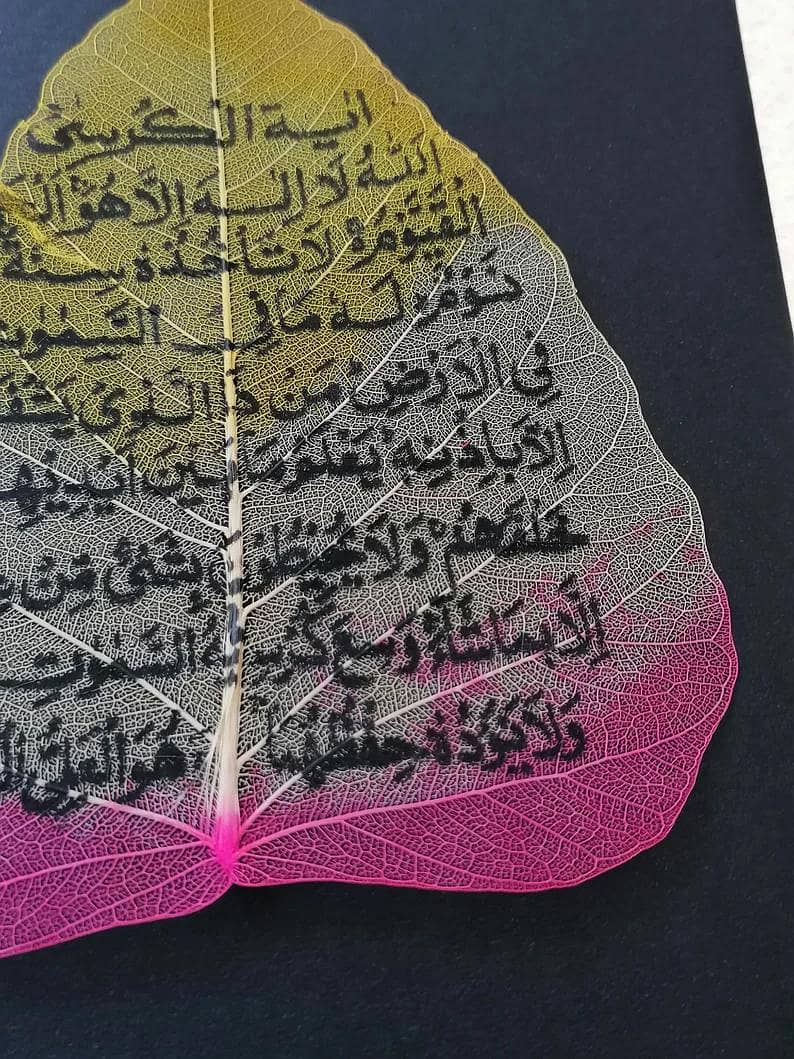 اية الكرسىّ
اَللّٰهُ لَا اِلٰهَ اِلَّا هُوَ
اَلْقَيُّومُ لَا تَأْخُذُهُ سِنَةٌ
نَوْمٌ لَهُ مَا فِي السَّمٰوٰتِ
فِي الْاَرْضِ مَنْ ذَا الَّذِى
اِلَّا بِاِذْنِهِ يَعْلَمُ مَا بَيْنَ
خَلْفَهُمْ وَلَا يُحِيطُونَ بِشَىْءٍ مِنْ
اِلَّا بِمَا شَاءَ وَسِعَ كُرْسِيُّهُ السَّمٰوٰتِ
وَلَا يَؤُدُهُ حِفْظُهُمَا وَهُوَ الْعَلِىُّ